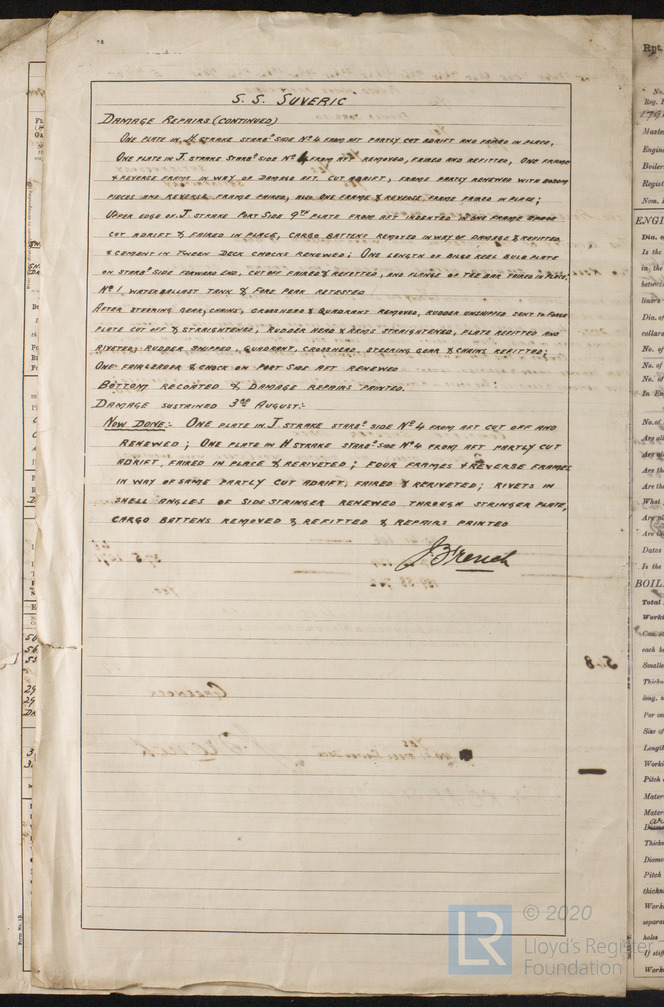 S. S. SUVERIC
DAMAGE REPAIRS (CONTINUED)
ONE PLATE IN H STRAKE STARBD SIDE No 4 FROM AFT PARTLY CUT ADRIFT AND FAIRED IN PLACE,
ONE PLATE IN J. STRAKE STARBD SIDE No 4 FROM AFT REMOVED, FAIRED AND REFITTED, ONE FRAME
& REVERSE FRAME IN WAY OF DAMAGE AFT. CUT ADRIFT, FRAME PARTLY RENEWED WITH BOSOM
PIECES AND REVERSE FRAME FAIRED, ALSO ONE FRAME & REVERSE FRAME FAIRED IN PLACE;
UPPER EDGE OF J. STRAKE PORT SIDE 9TH PLATE FROM AFT INDENTED IN ONE FRAME SPACE
CUT ADRIFT & FAIRED IN PLACE, CARGO BATTENS REMOVED IN WAY OF DAMAGE & REFITTED
& CEMENT IN TWEEN DECK CHOCKS RENEWED; ONE LENGTH OF BILGE KEEL BULB PLATE
ON STARBD SIDE FORWARD END, CUT OFF FAIRED & REFITTED, AND FLANGE OF TEE BAR FAIRED IN PLACE,
No 1 WATERBALLAST TANK & FORE PEAK RETESTED
AFTER STEERING GEAR, CHAINS, CROSSHEAD & QUADRANT REMOVED, RUDDER UNSHIPPED SENT TO FORGE
PLATE CUT OFF & STRAIGHTENED, RUDDER HEAD & ARMS STRAIGHTENED, PLATE REFITTED AND
RIVETED, RUDDER SHIPPED, QUADRANT, CROSSHEAD, STEERING GEAR & CHAINS REFITTED;
ONE FAIRLEADER & CHOCK ON PORT SIDE AFT RENEWED
BOTTOM RECOATED & DAMAGE REPAIRS PAINTED.
DAMAGE SUSTAINED 3RD AUGUST:-
NOW DONE:- ONE PLATE IN J. STRAKE STARBD SIDE No 4 FROM AFT CUT OFF AND
RENEWED; ONE PLATE IN H STRAKE STARBD SIDE No 4 FROM AFT PARTLY CUT
ADRIFT, FAIRED IN PLACE & RERIVETED; FOUR FRAMES & REVERSE FRAMES
IN WAY OF SAME PARTLY CUT ADRIFT, FAIRED & RERIVETED; RIVETS IN
SHELL ANGLES OF SIDE STRINGER RENEWED THROUGH STRINGER PLATE,
CARGO BATTENS REMOVED & REFITTED & REPAIRS PAINTED
J. French
LR
© 2020
Lloyd's Register
Foundation